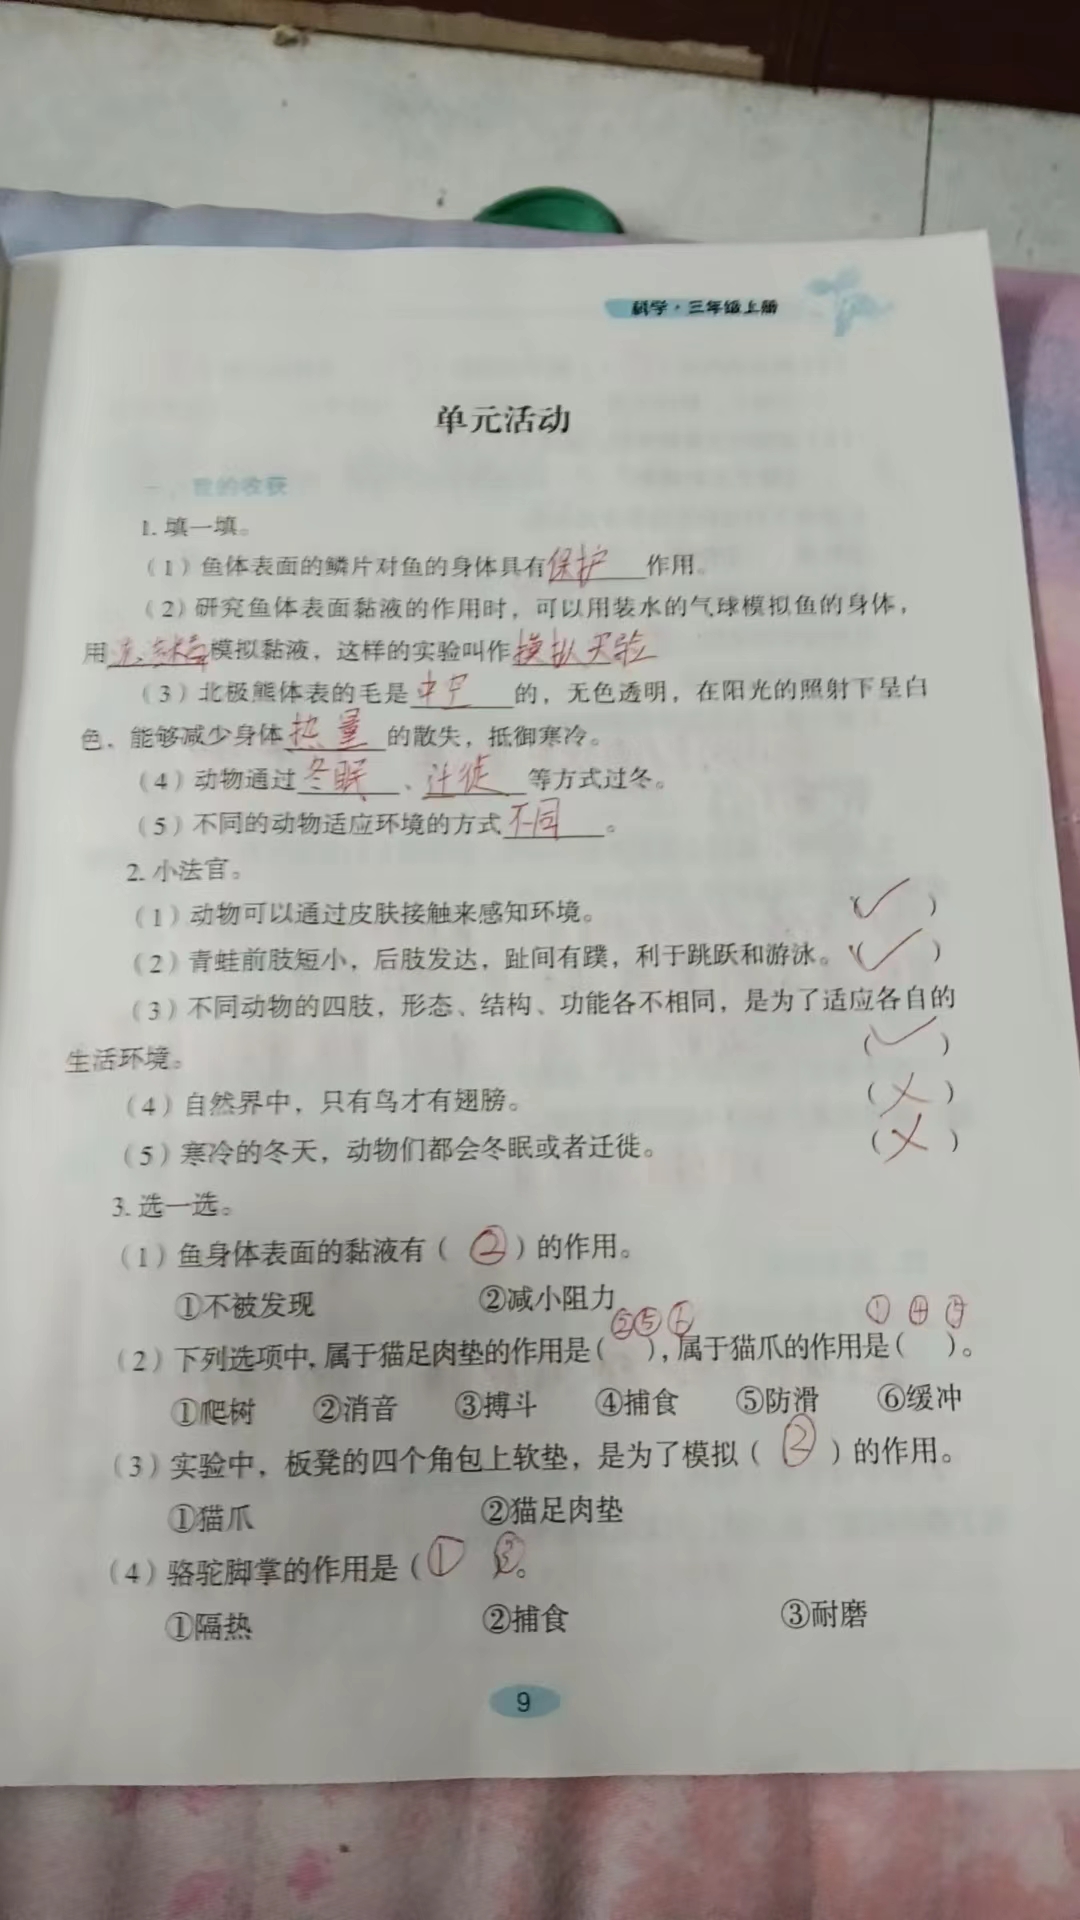 科学·三年级上册
单元活动
一、我的收获
1. 填一填。
(1) 鱼体表面的鳞片对鱼的身体具有保护作用。
(2) 研究鱼体表面黏液的作用时，可以用装水的气球模拟鱼的身体，
用模拟黏液，这样的实验叫作模拟实验
(3) 北极熊体表的毛是中空的，无色透明，在阳光的照射下呈白
色，能够减少身体热量的散失，抵御寒冷。
(4) 动物通过冬眠、迁徙等方式过冬。
(5) 不同的动物适应环境的方式不同。
2. 小法官。
(1) 动物可以通过皮肤接触来感知环境。(✓)
(2) 青蛙前肢短小，后肢发达，趾间有蹼，利于跳跃和游泳。(✓)
(3) 不同动物的四肢，形态、结构、功能各不相同，是为了适应各自的
生活环境。(✓)
(4) 自然界中，只有鸟才有翅膀。(×)
(5) 寒冷的冬天，动物们都会冬眠或者迁徙。(×)
3. 选一选。
(1) 鱼身体表面的黏液有(②)的作用。
①不被发现 ②减小阻力
(2) 下列选项中,属于猫足肉垫的作用是(②⑤⑥),属于猫爪的作用是(①④)。
①爬树 ②消音 ③搏斗 ④捕食 ⑤防滑 ⑥缓冲
(3) 实验中，板凳的四个角包上软垫，是为了模拟(②)的作用。
①猫爪 ②猫足肉垫
(4) 骆驼脚掌的作用是(① ③。
①隔热 ②捕食 ③耐磨
9